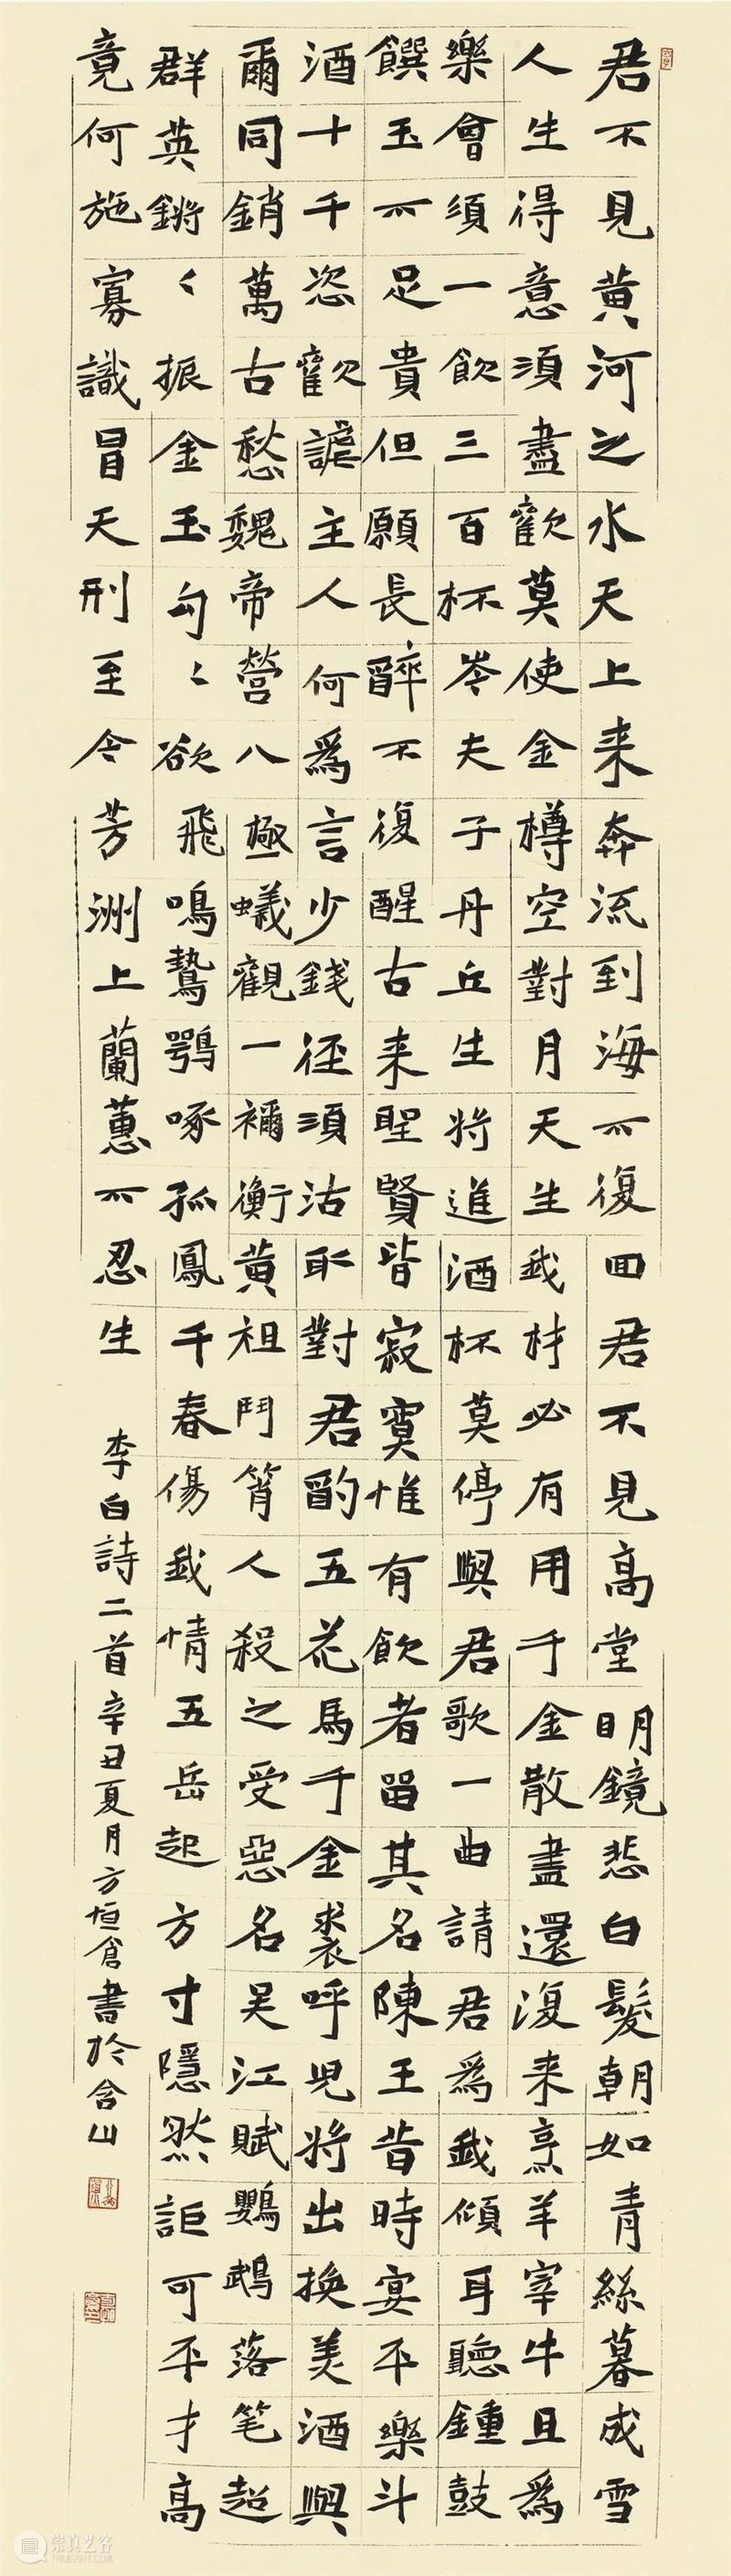 君不見黄河之水天上来奔流到海不復回君不見高堂明鏡悲白髮朝如青絲暮成雪
人生得意須盡歡莫使金樽空對月天生我材必有用千金散盡還復来烹羊宰牛且爲
樂會須一飲三百杯岑夫子丹丘生将進酒杯莫停與君歌一曲請君爲我傾耳聽鍾鼓
饌玉不足貴但願長醉不復醒古来聖賢皆寂寞惟有飲者留其名陳王昔時宴平樂斗
酒十千恣歡謔主人何爲言少錢徑須沽取對君酌五花馬千金裘呼児将出換美酒與
爾同銷萬古愁魏帝營八極蟻觀一禰衡黄祖鬥筲人殺之受惡名吴江賦鸚鵡落笔超
群英鏘〻振金玉勾〻欲飛鳴鷙鶚啄孤鳳千春傷我情五岳起方寸隱然詎可平才高
竟何施寡識冒天刑至今芳洲上蘭蕙不忍生 李白詩二首辛丑夏月方恒倉書於含山
崇真艺客
TRUEART.COM